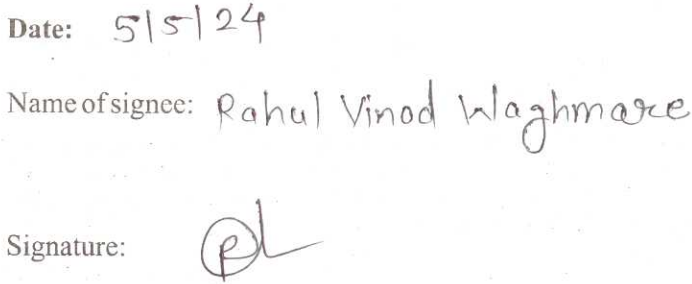 Date: 5|5|24
Name of signee: Rahul Vinod Waghmare
Signature: